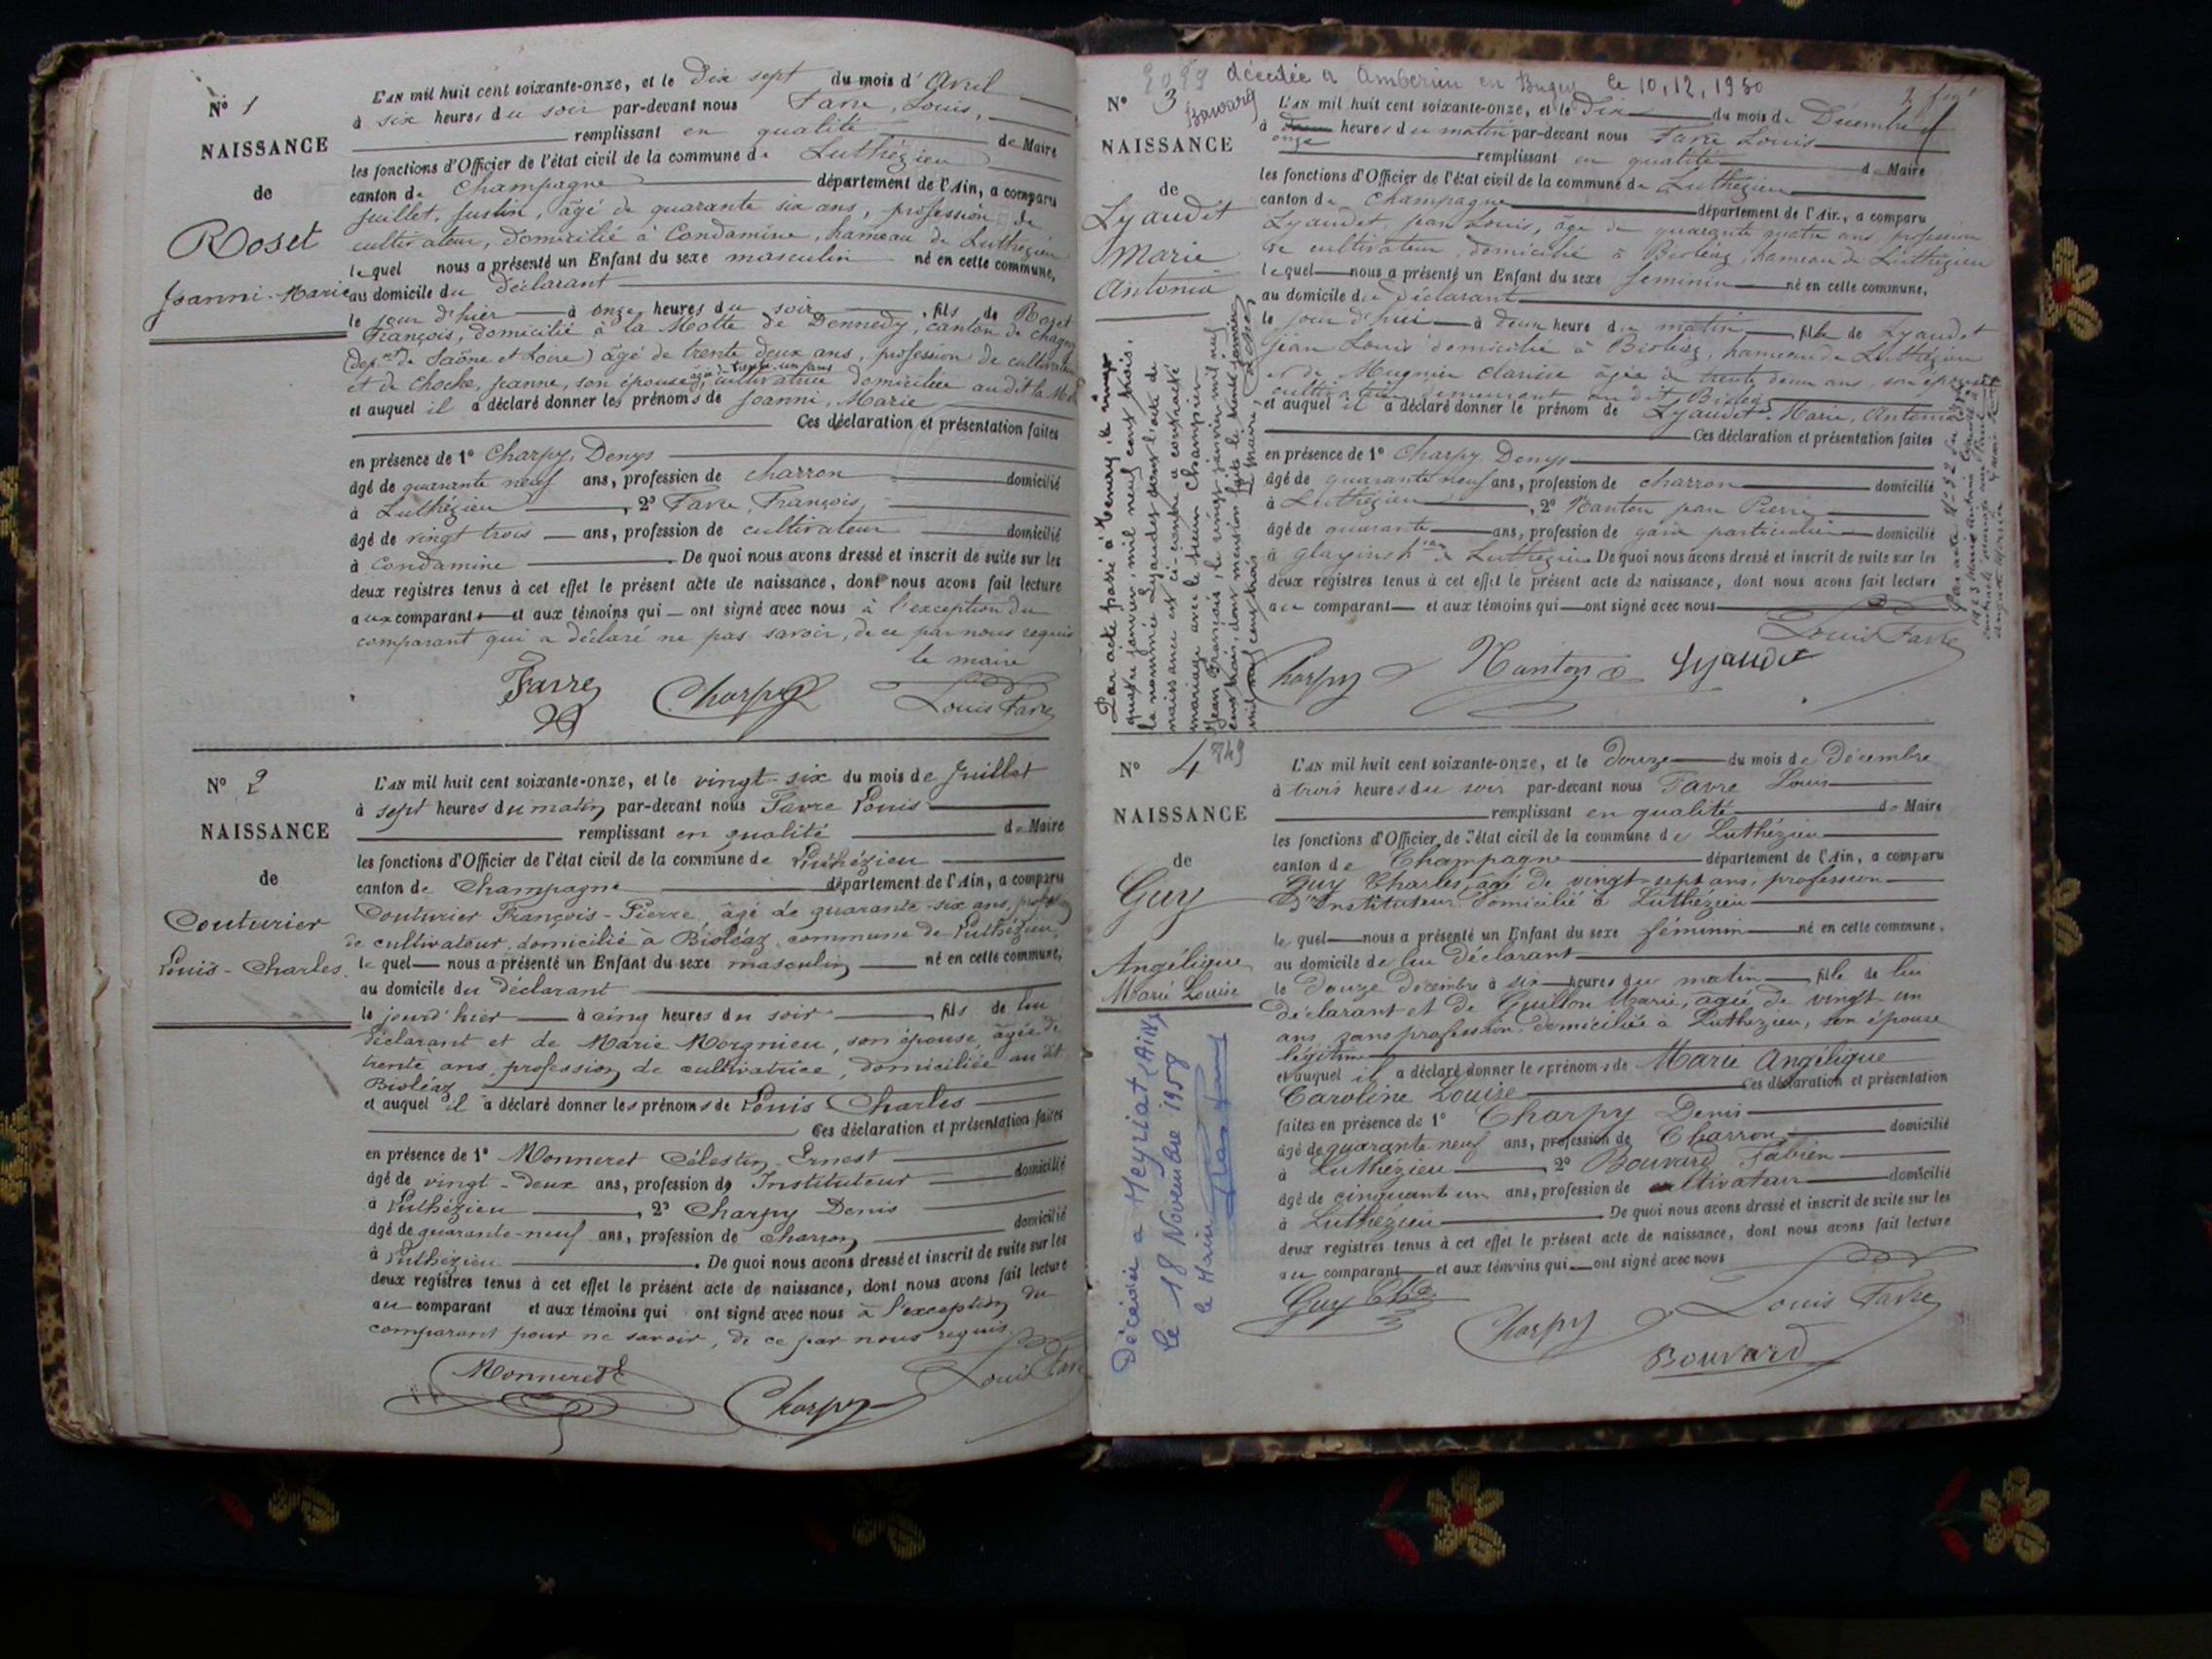 N° 1
NAISSANCE
de
Roset
Joanni-Marie
L'AN mil huit cent soixante-onze, et le dix sept du mois d'Avril
à six heures du soir par-devant nous Favre, Louis,
remplissant en qualité de Maire
les fonctions d'Officier de l'état civil de la commune de Luthézieu
canton de Champagne département de l'Ain, a comparu
Juillet, Justin, âgé de quarante six ans, profession de
cultivateur, domicilié à Condamine, hameau de Luthézieu
lequel nous a présenté un Enfant du sexe masculin né en cette commune,
au domicile du déclarant
le jour d'hier à onze heures du soir, fils de Roset
François, domicilié à la Motte de Dennedy, canton de Chagny
(dep.nt de Saône et Loire) âgé de trente deux ans, profession de cultivateur
et de Choche, Jeanne, son épouse, âgée de vingt un ans cultivatrice domiciliée au dit la Motte
et auquel il a déclaré donner les prénoms de Joanni, Marie
Ces déclaration et présentation faites
en présence de 1° Charpy, Denys
âgé de quarante neuf ans, profession de charron domicilié
à Luthézieu, 2° Favre, François,
âgé de vingt trois ans, profession de cultivateur domicilié
à Condamine De quoi nous avons dressé et inscrit de suite sur les
deux registres tenus à cet effet le présent acte de naissance, dont nous avons fait lecture
aux comparant et aux témoins qui ont signé avec nous à l'exception du
comparant qui a déclaré ne pas savoir, de ce par nous requis
le maire
Favre Charpy Louis Favre
N° 2
NAISSANCE
de
Couturier
Louis-Charles.
L'AN mil huit cent soixante-onze, et le vingt-six du mois de Juillet
à sept heures du matin par-devant nous Favre Louis
remplissant en qualité de Maire
les fonctions d'Officier de l'état civil de la commune de Luthézieu
canton de Champagne département de l'Ain, a comparu
Couturier François-Pierre, âgé de quarante-six ans, profession
de cultivateur, domicilié à Bioléaz, commune de Luthézieu,
lequel nous a présenté un Enfant du sexe masculin né en cette commune,
au domicile du déclarant
le jourd'hier à cinq heures du soir, fils de lui
déclarant et de Marie Morgnieu, son épouse, âgée de
trente ans, profession de cultivatrice, domiciliée au dit
Bioléaz
et auquel il a déclaré donner les prénoms de Louis Charles
Ces déclaration et présentation faites
en présence de 1° Monneret Célestin Ernest
âgé de vingt-deux ans, profession de Instituteur domicilié
à Luthézieu, 2° Charpy Denis
âgé de quarante-neuf ans, profession de charron domicilié
à Luthézieu. De quoi nous avons dressé et inscrit de suite sur les
deux registres tenus à cet effet le présent acte de naissance, dont nous avons fait lecture
au comparant et aux témoins qui ont signé avec nous à l'exception du
comparant pour ne savoir, de ce par nous requis
Monneret Charpy Louis Favre
décédée à Ambérieu en Bugey le 10,12,1950
N° 3
Bouvard
NAISSANCE
de
Lyaudet
Marie
Antonia
L'AN mil huit cent soixante-onze, et le dix du mois de Décembre
à onze heures du matin par-devant nous Favre Louis
remplissant en qualité de Maire
les fonctions d'Officier de l'état civil de la commune de Luthézieu
canton de Champagne département de l'Ain, a comparu
Lyaudet jean Louis, âgé de quarante quatre ans profession
de cultivateur, domicilié à Bioléaz, hameau de Luthézieu
lequel nous a présenté un Enfant du sexe féminin né en cette commune,
au domicile du déclarant
le jour d'hui à deux heure du matin, fille de Lyaudet
jean Louis domicilié à Bioléaz, hameau de Luthézieu
et de Mugnier Clarisse âgée de trente deux ans, son épouse
cultivatrice demeurant au dit Bioléaz
et auquel il a déclaré donner le prénom de Lyaudet Marie, Antonia
Ces déclaration et présentation faites
en présence de 1° Charpy Denys
âgé de quarante neuf ans, profession de charron domicilié
à Luthézieu, 2° Nanton jean Pierre
âgé de quarante ans, profession de garde particulier domicilié
à De quoi nous avons dressé et inscrit de suite sur les
deux registres tenus à cet effet le présent acte de naissance, dont nous avons fait lecture
au comparant et aux témoins qui ont signé avec nous
Louis Favre
Charpy Nanton Lyaudet
Par acte passé à Nancy, le vingt
quatre janvier, mil neuf cent trois,
la nommée Lyaudet dont l'acte de
naissance est ci-contre a contracté
mariage avec le sieur Champier
Jean François, le vingt janvier mil neuf
cent trois, dont mention faite le trente janvier
mil neuf cent trois
Le Maire
N° 4
749
NAISSANCE
de
Guy
Angélique
Marie Louise
L'AN mil huit cent soixante-onze, et le douze du mois de Décembre
à trois heures du soir par-devant nous Favre Louis
remplissant en qualité de Maire
les fonctions d'Officier de l'état civil de la commune de Luthézieu
canton de Champagne département de l'Ain, a comparu
Guy Charles, âgé de vingt-sept ans, profession
d'Instituteur domicilié à Luthézieu
lequel nous a présenté un Enfant du sexe féminin né en cette commune.
au domicile de lui déclarant
le douze Décembre à six heures du matin, fille de lui
déclarant et de Guillon Marie, âgée de vingt un
ans sans profession domiciliée à Luthézieu, son épouse
légitime
et auquel il a déclaré donner les prénoms de Marie Angélique
Caroline Louise Ces déclaration et présentation
faites en présence de 1° Charpy Denis
âgé de quarante neuf ans, profession de Charron domicilié
à Luthézieu, 2° Bouvard Fabien
âgé de cinquante un ans, profession de cultivateur domicilié
à Luthézieu De quoi nous avons dressé et inscrit de suite sur les
deux registres tenus à cet effet le présent acte de naissance, dont nous avons fait lecture
au comparant et aux témoins qui ont signé avec nous
Guy Ch. Charpy Louis Favre
Bouvard
Décédée à Meyriat (Ain)
le 18 Novembre 1958
le Maire